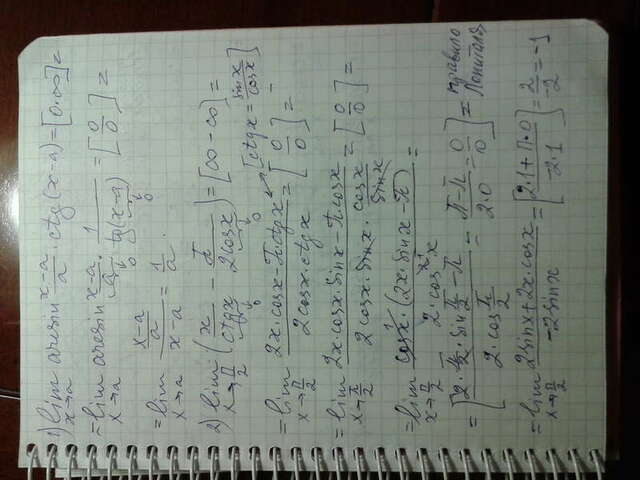 1) lim x→a arcsin (x-a)/a · ctg(x-a) = [0·∞] =
= lim x→a arcsin (x-a)/a · 1/tg(x-a) = [0/0] =
= lim x→a ((x-a)/a)/(x-a) = 1/a.
2) lim x→π/2 (x/ctgx - π/2cosx) = [∞-∞] =
= lim x→π/2 (2x·cosx-π·ctgx)/(2cosx·ctgx) = [0/0] = [ctgx = sinx/cosx]
= lim x→π/2 (2x·cosx·sinx-π·cosx)/(2cosx·sinx·cosx/sinx) = [0/0] =
= lim x→π/2 cosx·(2x·sinx-π)/(2·cos²x) =
= [(2·π/2·sin π/2-π)/(2·cos π/2) = (π-π)/(2·0) = 0/0] = правило Лопиталя
= lim x→π/2 (2sinx+2x·cosx)/(-2sinx) = [(2·1+π·0)/(-2·1)] = 2/-2 = -1